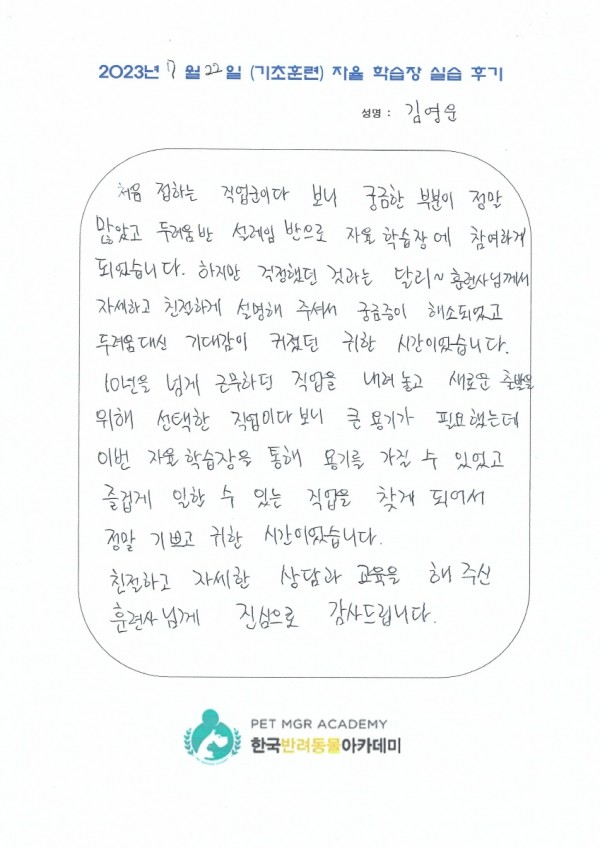 2023년 7월 22일 (기초훈련) 자율 학습장 실습 후기
성명 : 김영운
처음 접하는 직업군이다 보니 궁금한 부분이 정말
많았고 두려움반 설레임 반으로 자율 학습장에 참여하게
되었습니다. 하지만 걱정했던 것과는 달리~ 훈련사님께서
자세하고 친절하게 설명해 주셔서 궁금증이 해소되었고
두려움대신 기대감이 커졌던 귀한 시간이였습니다.
10년을 넘게 근무하던 직업을 내려놓고 새로운 출발을
위해 선택한 직업이다 보니 큰 용기가 필요했는데
이번 자율학습장을 통해 용기를 가질 수 있었고
즐겁게 일할 수 있는 직업을 찾게 되어서
정말 기쁘고 귀한 시간이였습니다.
친절하고 자세한 상담과 교육을 해 주신
훈련사님께 진심으로 감사드립니다.
PET MGR ACADEMY
한국반려동물아카데미